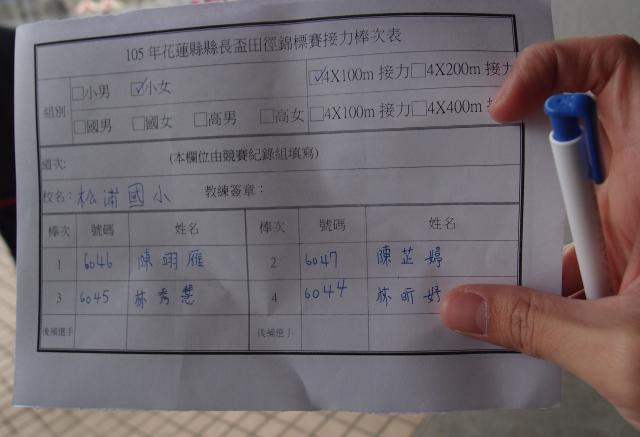 105年花蓮縣縣長盃田徑錦標賽接力棒次表
組別 □小男 ☑小女 ☑4X100m 接力 □4X200m 接力
□國男 □國女 □高男 □高女 □4X100m 接力 □4X400m 接
道次: (本欄位由競賽紀錄組填寫)
校名: 松浦國小 教練簽章:
棒次 號碼 姓名 棒次 號碼 姓名
1 6046 陳翊雁 2 6047 陳芷婷
3 6045 林秀慧 4 6044 林昕妤
後補選手 後補選手